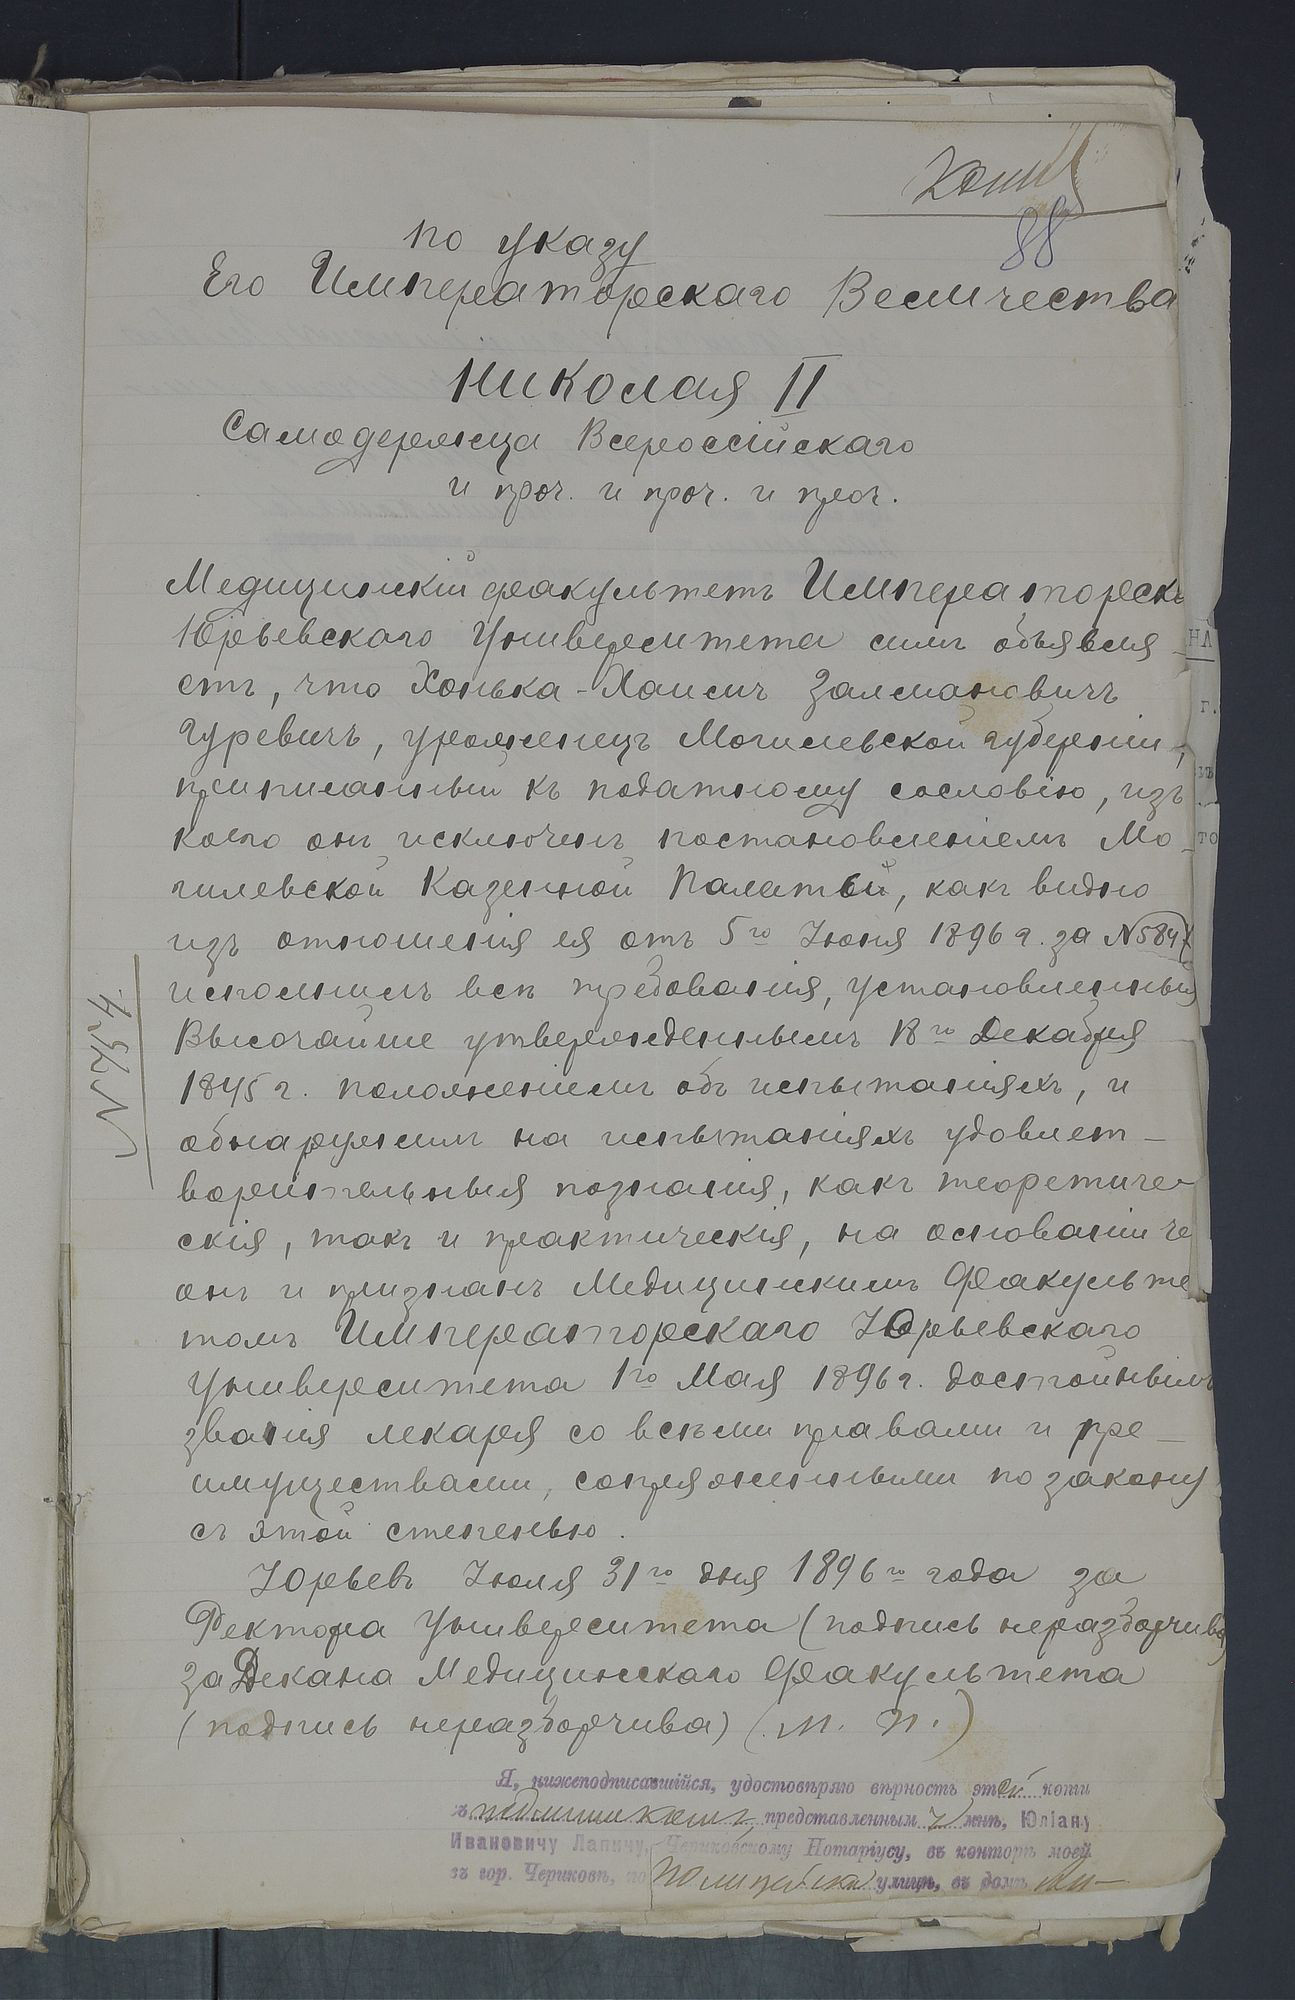 Копия
88
по указу
Его Императорскаго Величества
Николая II
Самодержца Всероссійскаго
и проч. и проч. и проч.
Медицинскій факультетъ Императорска
Юрьевскаго Университета симъ объявля
етъ, что Хонька-Хаимъ Залмановичъ
Гуревичъ, уроженецъ Могилевской губерніи,
приписанный къ податному сословію, изъ
коего онъ исключенъ постановленіемъ Мо-
гилевской Казенной Палаты, какъ видно
изъ отношенія ея отъ 5го Іюня 1896 г. за №584
исполнилъ всѣ требованія, установленныя
Высочайше утвержденнымъ 18го Декабря
1845 г. положеніемъ объ испытаніяхъ, и
обнаружилъ на испытаніяхъ удовлет-
ворительныя познанія, какъ теоретиче-
скія, такъ и практическія, на основаніи че
онъ и признанъ Медицинскимъ Факульте
томъ Императорскаго Юрьевскаго
Университета 1го Мая 1896 г. достойнымъ
званія лекаря со всѣми правами и пре-
имуществами, сопряженными по закону
съ этой степенью.
Юрьевъ Іюля 31го дня 1896го года за
Ректора Университета (подпись неразборчива)
за Декана Медицинскаго Факультета
(подпись неразборчива) (М. П.)
Я, нижеподписавшійся, удостовѣряю вѣрность этой копіи
съ подлинникомъ, представленнымъ мнѣ, Юліану
Ивановичу Лапичу, Чериковскому Нотаріусу, въ конторѣ моей
въ гор. Чериковѣ, по Полицейской улицѣ, въ домѣ